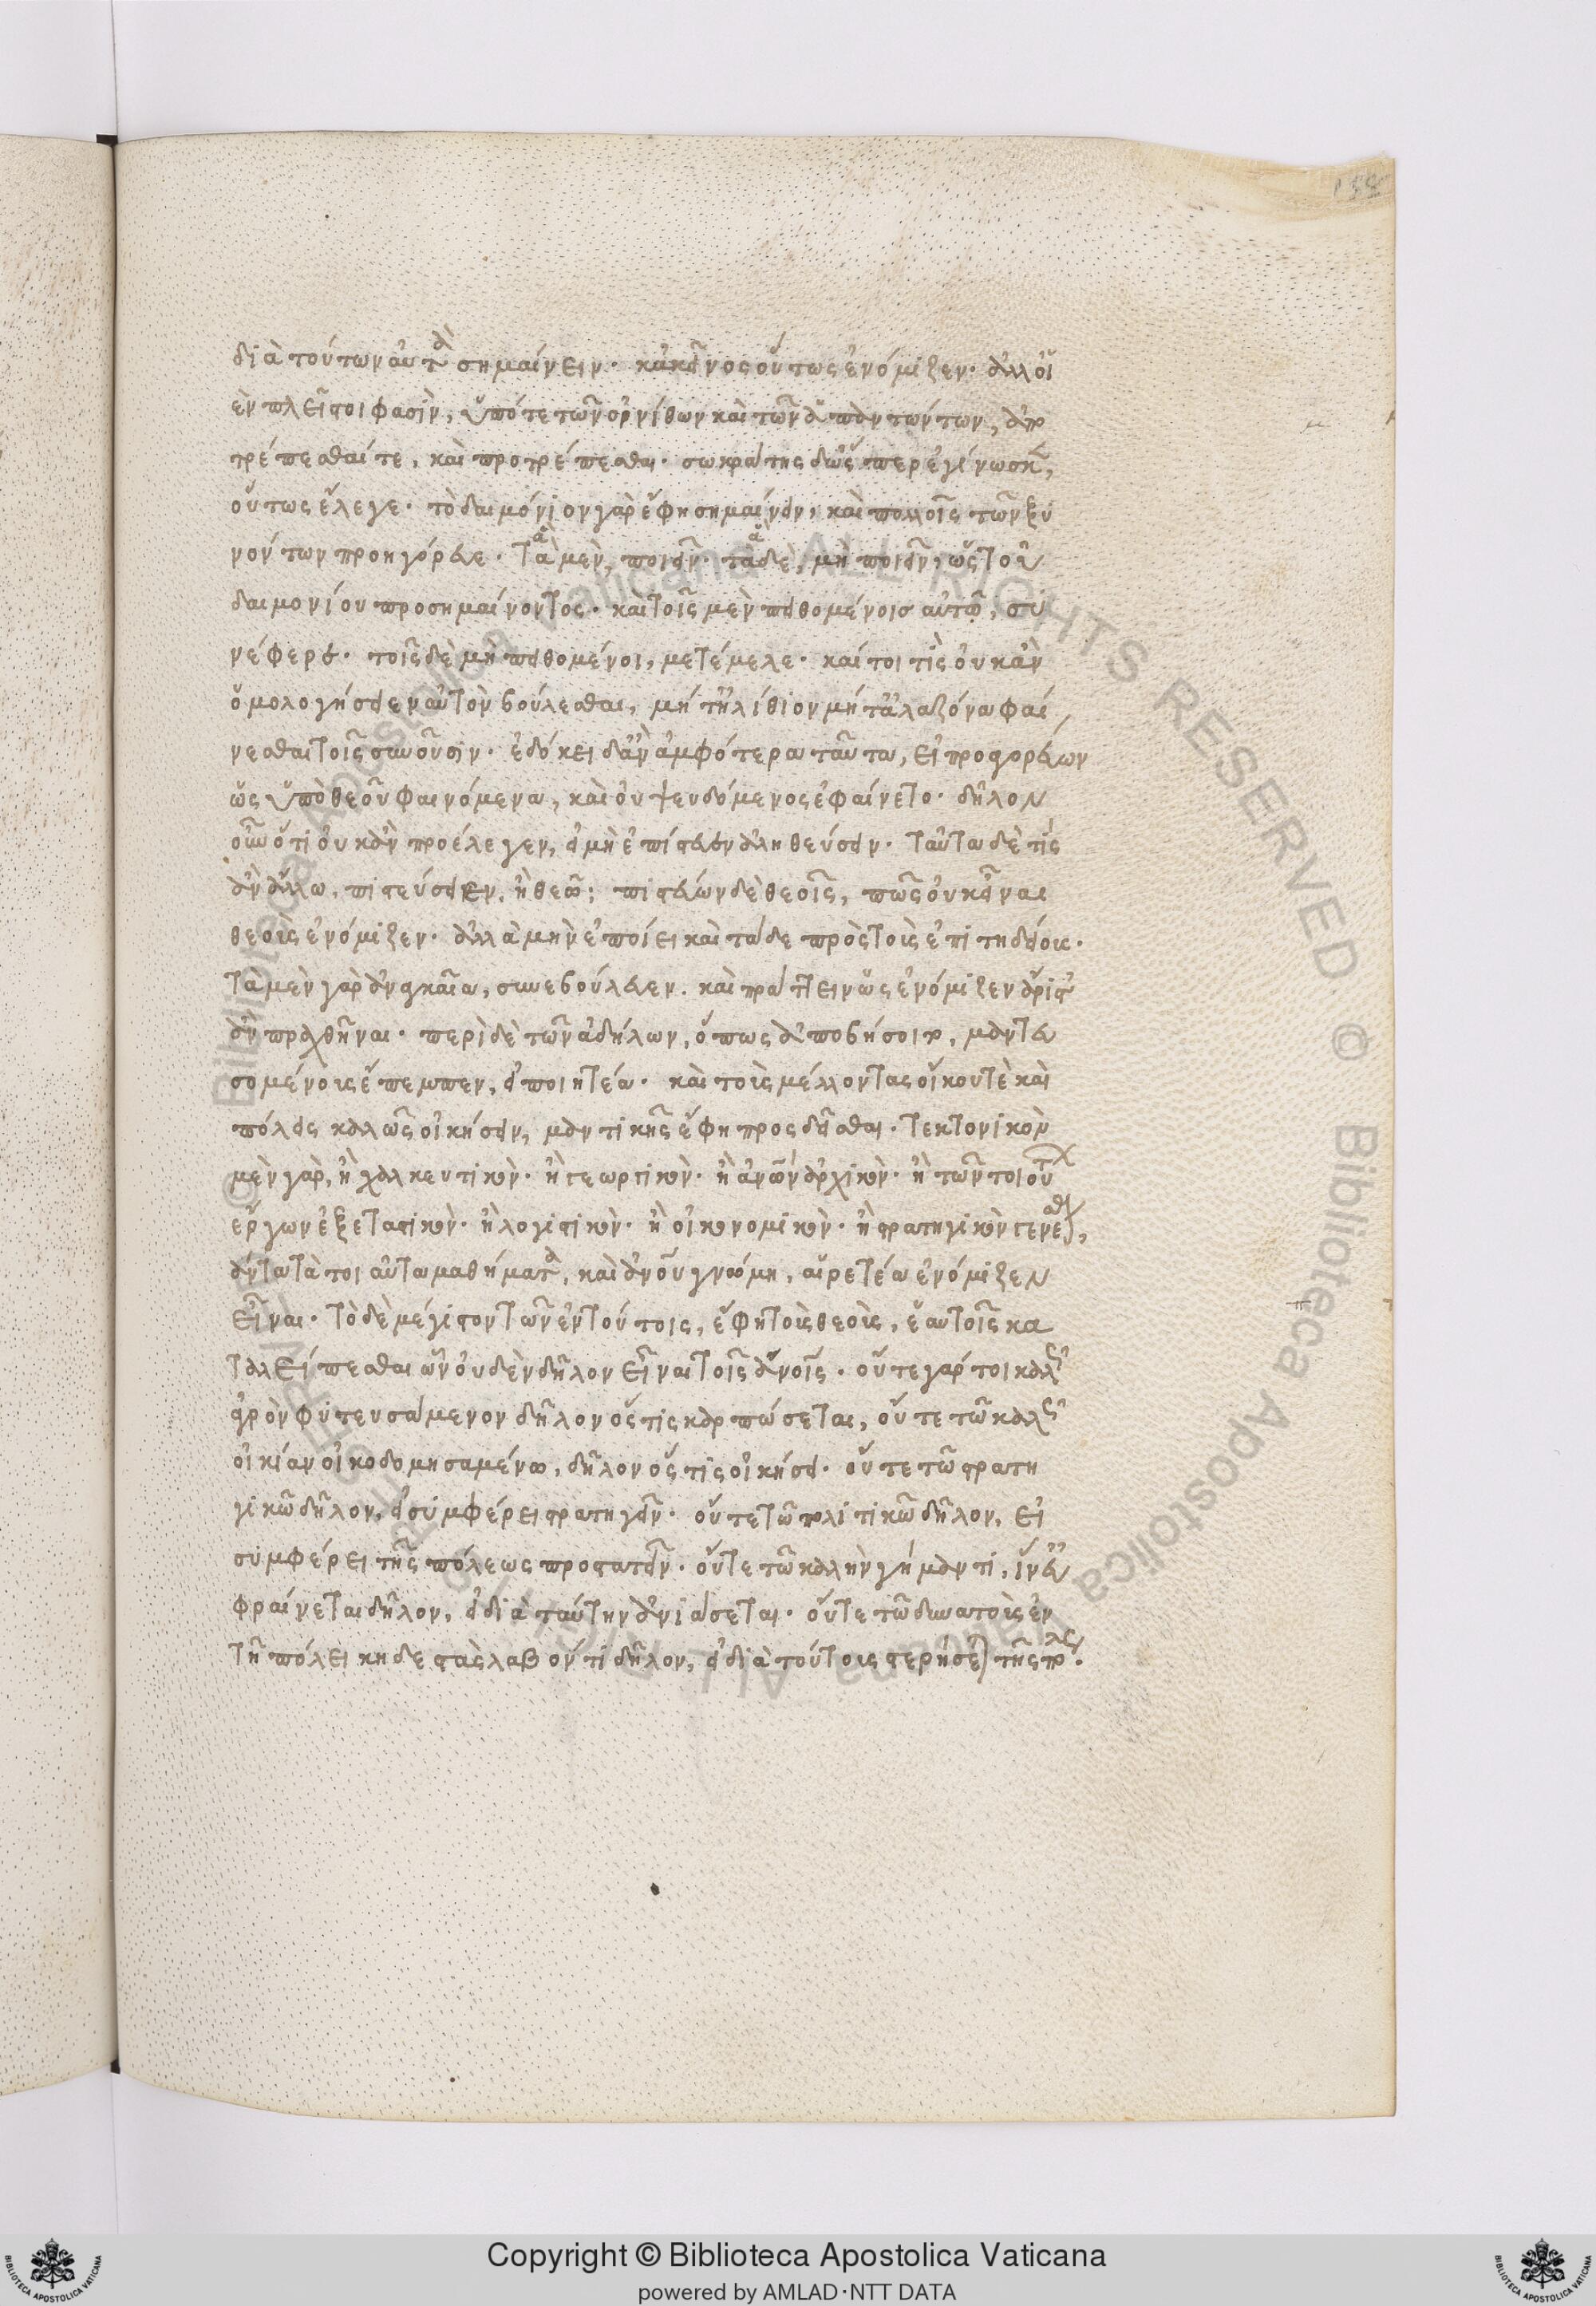 155
διὰ τούτων αὐτὰ σημαίνειν· κἀκεῖνος οὕτως ἐνόμιζεν· ἀλλ οἱ
ὲν πλεῖστοι φασὶν, ὑπό τε τῶν ὀρνίθων καὶ τῶν ἀπαντώντων, ἀπο
τρέπεσθαί τε, καὶ προτρέπεσθαι· σωκράτης δ ὥσπερ ἐγίνωσκε,
οὕτως ἔλεγε· τὸ δαιμόνιον γὰρ ἔφη σημαίνειν, καὶ πολλοῖς τῶν ξυ
νόντων προηγόρευε· τὰ μὲν, ποιεῖν· τὰ δὲ, μὴ ποιεῖν, ὡς τοῦ
δαιμονίου προσημαίνοντος· καὶ τοῖς μὲν πειθομένοισ αὐτῷ, συ
νέφερε· τοῖς δὲ μὴ πειθομένοι, μετέμελε· καί τοι τὶς οὐκ ἂν
ὁμολογήσειεν αὐτὸν βούλεσθαι, μήτ ἠλίθιον μήτ ἀλαζόνα φαί
νεσθαι τοῖς συνοῦσιν· ἐδόκει δ ἂν ἀμφότερα ταῦτα, εἰ προαγορεύων
ὡς ὑπὸ θεοῦ φαινόμενα, καὶ οὐ ψευδόμενος ἐφαίνετο· δῆλον
οὖν ὅτι οὐκ ἂν προέλεγεν, εἰ μὴ ἐπίστευεν ἀληθεύσειν· ταῦτα δὲ τίς
ἂν ἄλλω, πιστεύσειεν, ἢ θεῶ; πιστεύων δὲ θεοῖς, πῶς οὐκ εἶναι
θεοὺς ἐνόμιζεν· ἀλλὰ μὴν ἐποίει καὶ τάδε πρὸς τοὺς ἐπιτηδείους·
τὰ μὲν γὰρ ἀναγκαῖα, συνεβούλευεν· καὶ πράττειν ὡς ἐνόμιζεν ἄριστ
ἂν πραχθῆναι· περὶ δὲ τῶν ἀδήλων, ὅπως ἀποβήσοιτο, μαντευ
σομένους ἔπεμπεν, εἰ ποιητέα· καὶ τοὺς μέλλοντας οἴκους τὲ καὶ
πόλεις καλῶς οἰκήσειν, μαντικῆς ἔφη προςδεῖσθαι· τεκτονικὸν
μὲν γὰρ, ἢ χαλκευτικὸν· ἢ γεωργικὸν· ἢ ἀνθρώπων ἀρχικὸν· ἢ τῶν τοιούτων
ἔργων ἐξεταστικὸν· ἢ λογιστικὸν· ἢ οἰκονομικὸν· ἢ στρατηγικὸν γενέσθαι,
πάντα τὰ τοιαῦτα μαθήματα, καὶ ἀνθρώπου γνώμη, αἱρετέα ἐνόμιζεν
εἶναι· τὸ δὲ μέγιστον τῶν ἐν τούτοις, ἔφη τοὺς θεοὺς, ἑαυτοῖς κα
ταλείπεσθαι ὧν οὐδὲν δῆλον εἶναι τοῖς ἀνοῖς· οὔτε γάρ τοι καλῶς
ἀγρὸν φυτευσάμενον δῆλον ὅστις καρπώσεται, οὔτε τῶ καλῶς
οἰκίαν οἰκοδομησαμένω, δῆλον ὅςτις οἰκήσει· οὔτε τῶ στρατη
γικῶ δῆλον, εἰ συμφέρει στρατηγεῖν· οὔτε τῶ πολιτικῶ δῆλον, εἰ
συμφέρει τῆς πόλεως προστατεῖν· οὔτε τῶ καλὴν γήμαντι, ἵν εὐ
φραίνεται δῆλον, εἰ διὰ ταύτην ἀνιάσεται· οὔτε τῶ δυνατοὺς ἐν
τῆ πόλει κηδεστὰς λαβόντι δῆλον, εἰ διὰ τούτους στερήσεται τῆς πόλεως·
© Biblioteca Apostolica Vaticana ALL RIGHTS RESERVED
Copyright © Biblioteca Apostolica Vaticana
powered by AMLAD·NTT DATA